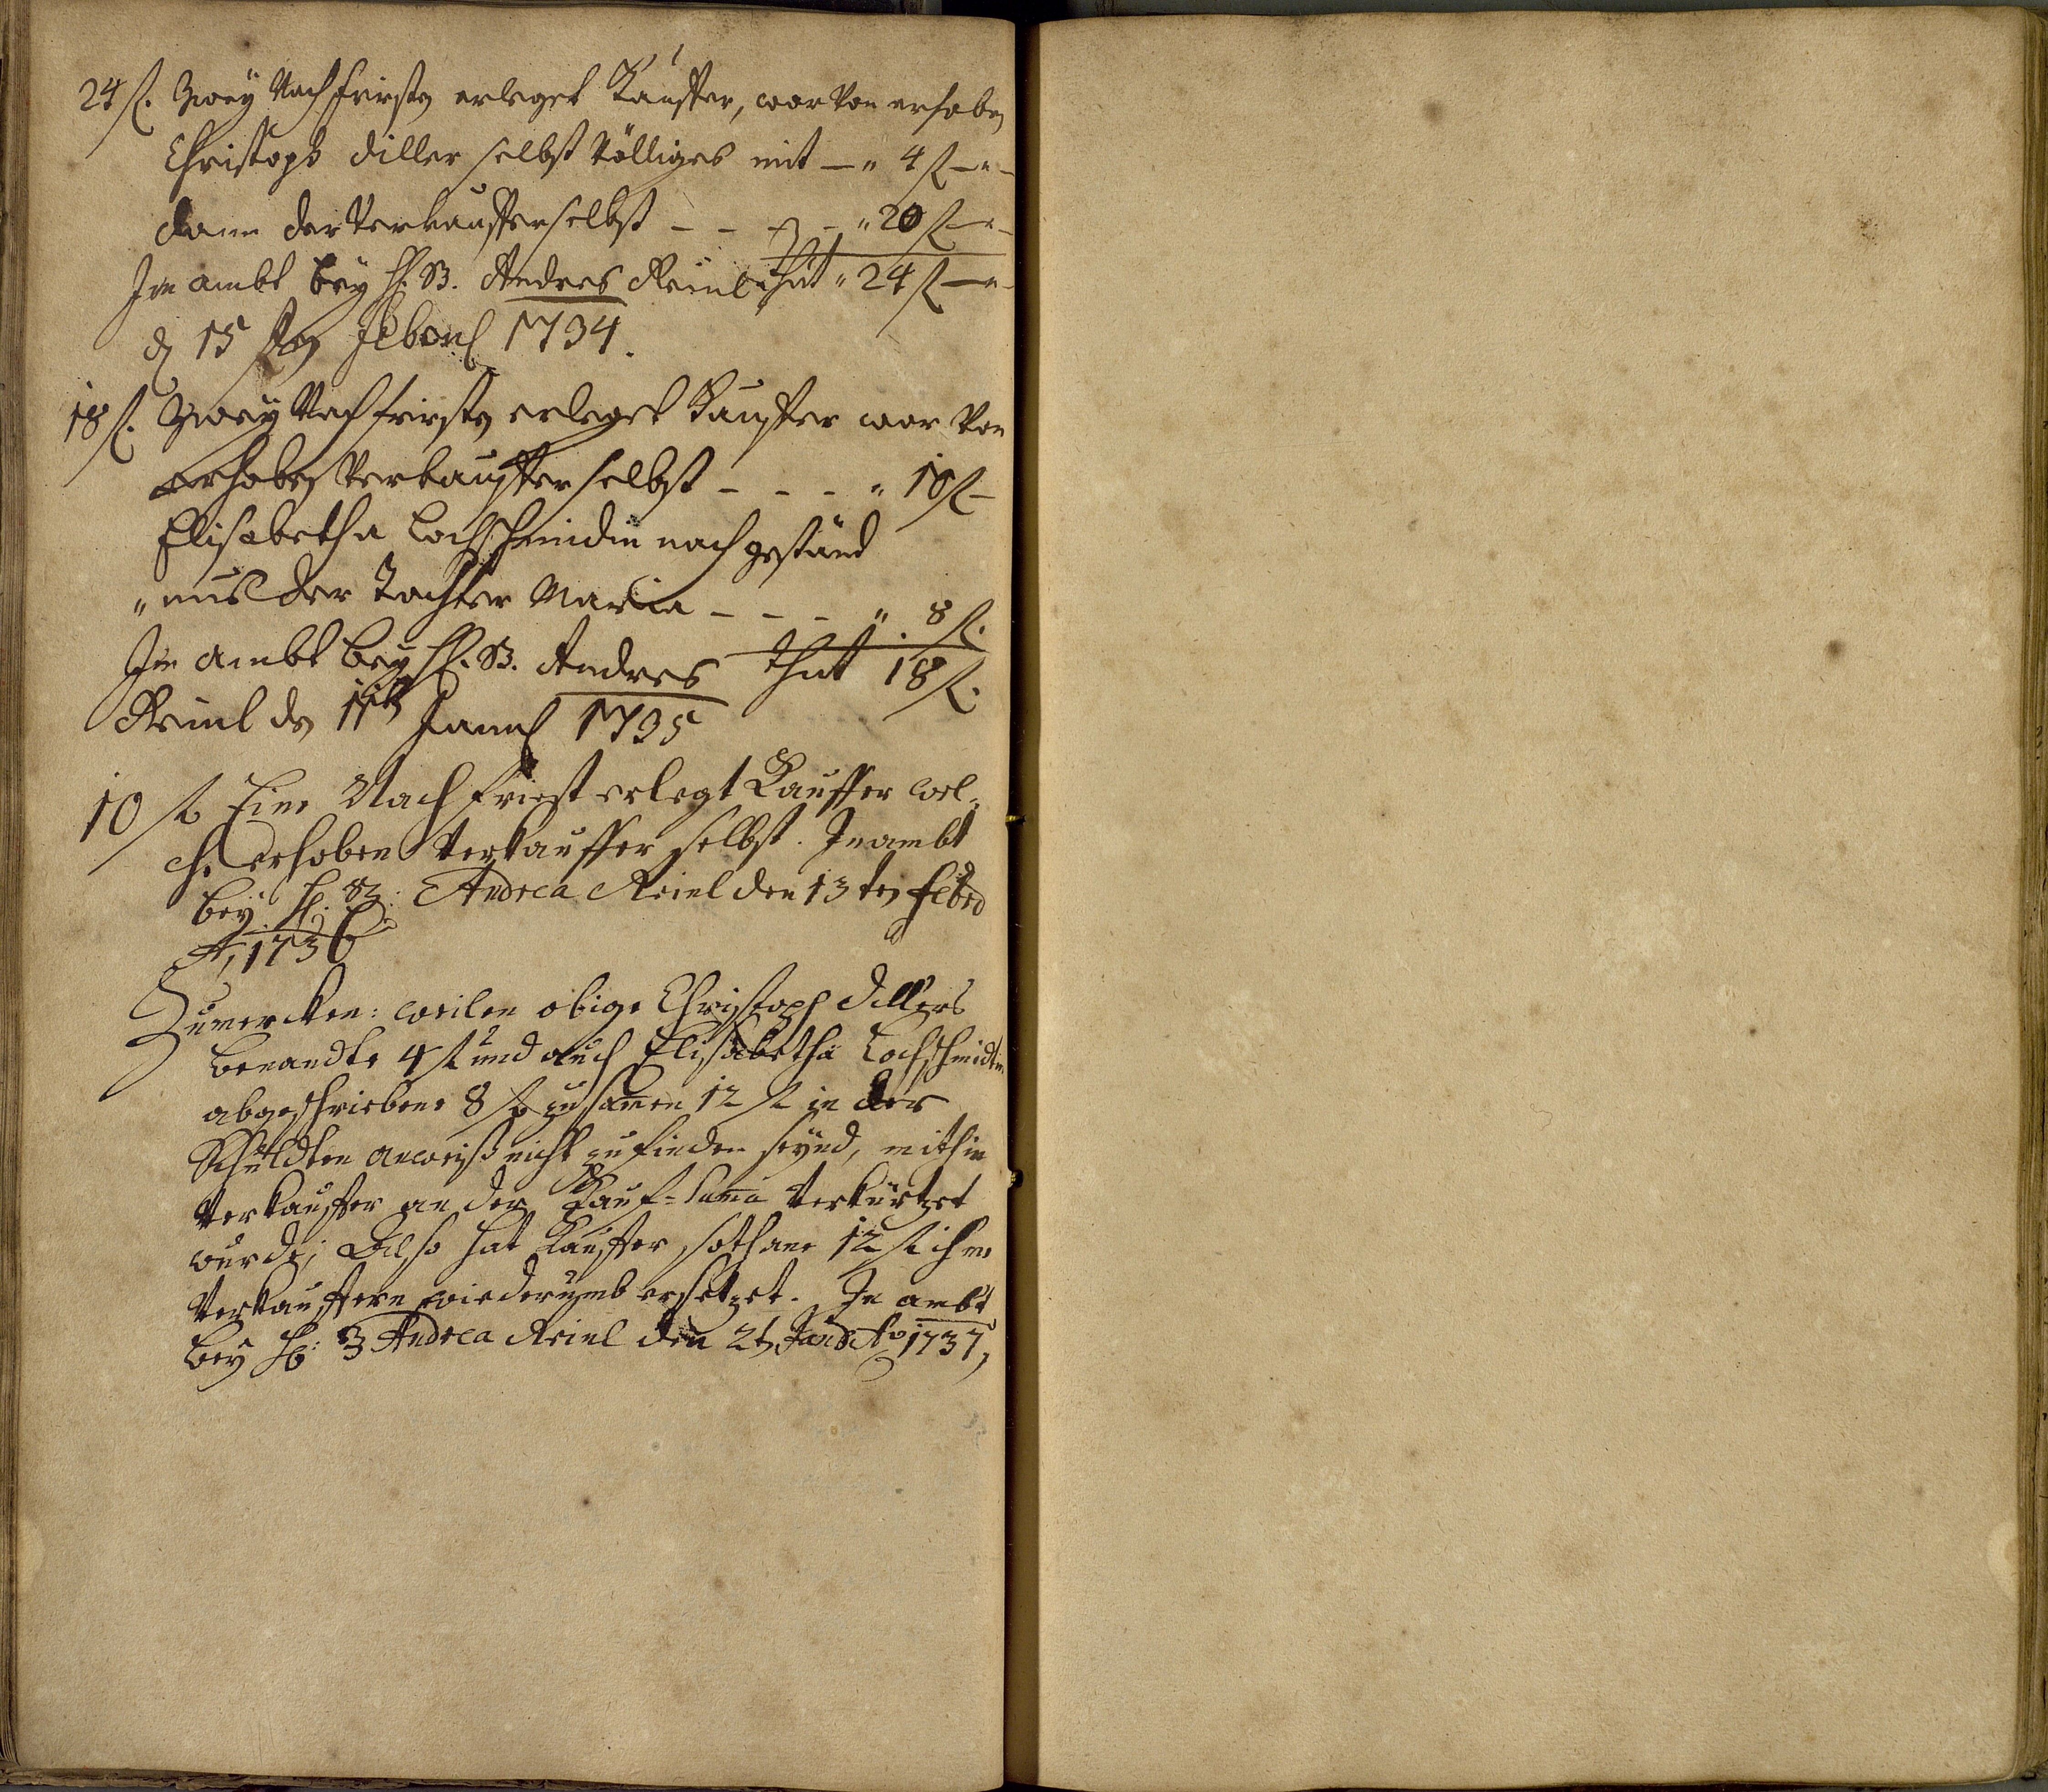 24 fl. Zweÿ Nachfristen erleget Kauffer, worvon erhoben
Christoph Diller selbst völliges mit — " 4 fl — " —
dann der Verkauffer selbst – – – – " 20 fl — " —
Im ambt beÿ H. B. Andres Reinl thut " 24 fl — " —
d 15 ten Febr 1734.
18 fl. Zweÿ Nachfristen erleget Kauffer wor von
Erhoben Verkauffer selbst – – – " 10 fl –
Elisabetha Lochschmidin nach geständ
" nus der Tochter Maria – – – " . 8 fl.
Im ambt beÿ H. B. Andres thut 18 fl.
Reinl den Jannr 1735
10 fl Eine Nachfriest erlegt Kauffer wel-
che erhoben Verkauffer selbst. In ambt
beÿ H. B: Andrea Reinl den 13 ten Febr
A. 1736
Zumercken: weilen obige Christoph Dillers
benandte 4 fl und auch Elisabetha Lochschmidtin
abgeschriebene 8 fl zusamen 12 fl in der
Schuldten anweiß nicht zufinden seÿnd, mithin
Verkauffer an der Kauf-Suma Verkürtzet
wurde; Also hat Kauffer sothane 12 fl ihme
Verkauffern wiederumb ersetzet. In ambt
beÿ H: B Andrea Reinl den Jan Ao 1737,